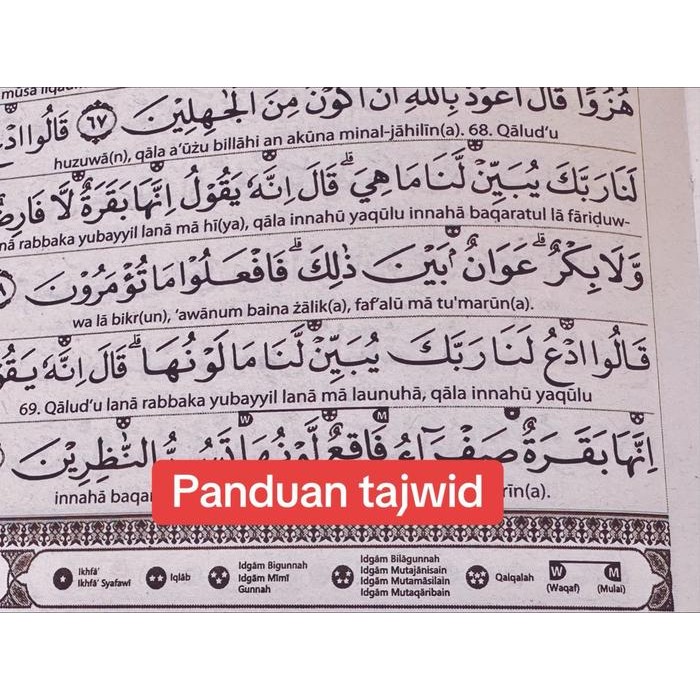 هُزُوًا قَالَ اَعُوْذُ بِاللّٰهِ اَنْ اَكُوْنَ مِنَ الْجٰهِلِيْنَ ٦٧ قَالُوا
huzuwā(n), qāla a'ūżu billāhi an akūna minal-jāhilīn(a). 68. Qālud'u
لَنَا رَبَّكَ يُبَيِّنْ لَّنَا مَا هِيَ ۗ قَالَ اِنَّهٗ يَقُوْلُ اِنَّهَا بَقَرَةٌ لَّا فَارِضٌ
rabbaka yubayyil lanā mā hī(ya), qāla innahū yaqūlu innahā baqaratul lā fāriḍuw-
وَّلَا بِكْرٌۗ عَوَانٌۢ بَيْنَ ذٰلِكَ ۗ فَافْعَلُوْا مَا تُؤْمَرُوْنَ
wa lā bikr(un), 'awānum baina żālik(a), faf'alū mā tu'marūn(a).
قَالُوا ادْعُ لَنَا رَبَّكَ يُبَيِّنْ لَّنَا مَا لَوْنُهَا ۗ قَالَ اِنَّهٗ
69. Qālud'u lanā rabbaka yubayyil lanā mā launuhā, qāla innahū yaqūlu
W M
اِنَّهَا بَقَرَةٌ صَفْرَاۤءُ فَاقِعٌ لَّوْنُهَا تَسُرُّ النّٰظِرِيْنَ
innahā
Panduan tajwid
Ikhfā'
Ikhfā' Syafawī
Iqlāb
Idgām Bigunnah
Idgām Mīmī
Gunnah
Idgām Bilāgunnah
Idgām Mutajānisain
Idgām Mutamāsilain
Idgām Mutaqāribain
Qalqalah
W (Waqaf)
M (Mulai)